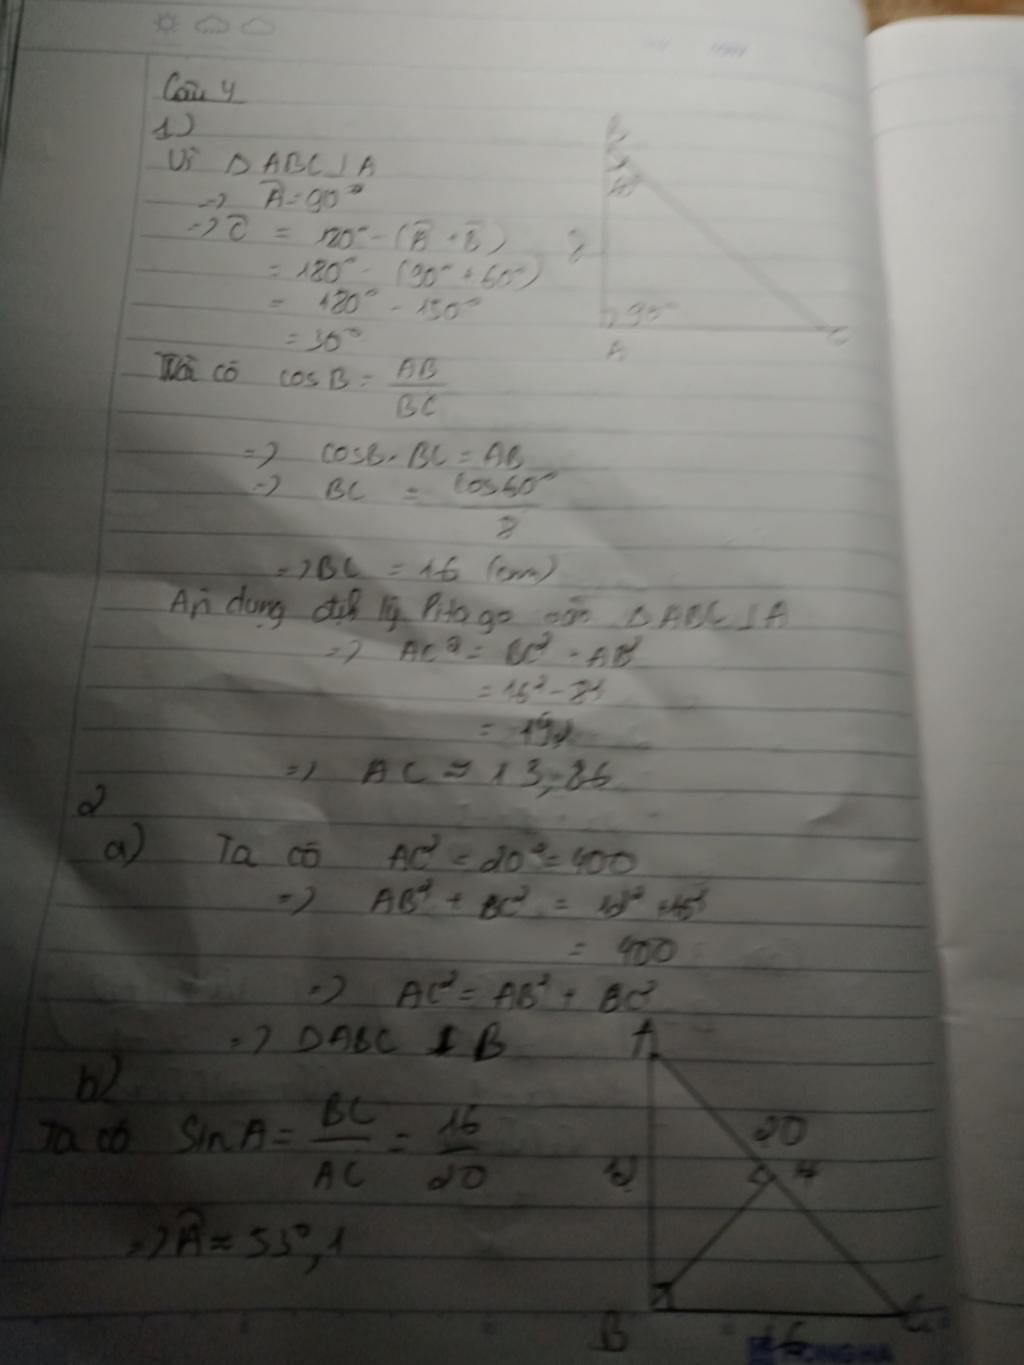 Câu 4
1)
Vì Δ ABC ⊥ A
=> Â = 90°
=> Ĉ = 180° - (Â + B̂)
= 180° - (90° + 60°)
= 180° - 150°
= 30°
Ta có cos B = AB / BC
=> cosB . BC = AB
=> BC = cos60° / 8
=> BC = 16 (cm)
dụng định lý Pitago vào Δ ABC ⊥ A
=> AC² = BC² - AB²
= 16² - 8²
= 192
=> AC ≈ 13,86
2
a) Ta có AC² = 20² = 400
=> AB² + BC² = 12² + 16²
= 400
=> AC² = AB² + BC²
=> ΔABC ⊥ B
b)
Ta có Sin A = BC / AC = 16 / 20
=> Â ≈ 53°,1
B
8
90°
A
C
A
20
12
H
B
16
C